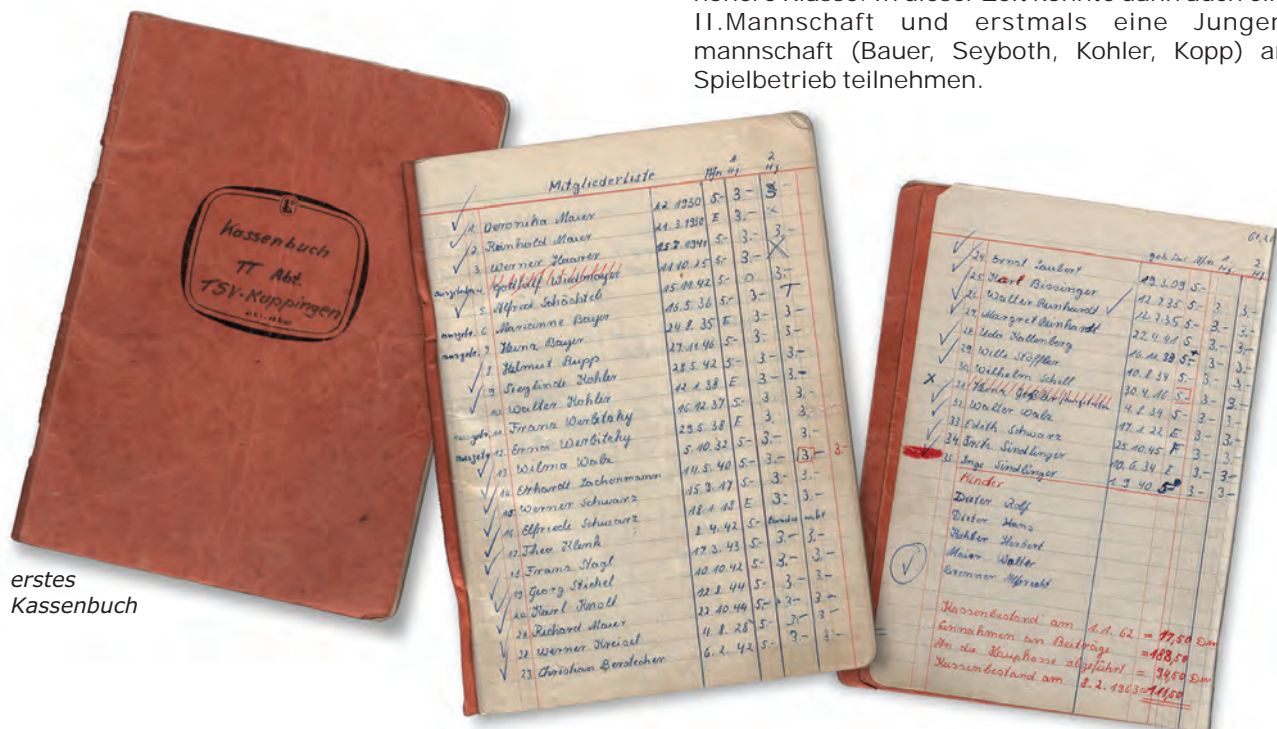 höhere Klasse. In dieser Zeit konnte dann auch ein
II.Mannschaft und erstmals eine Jungen
mannschaft (Bauer, Seyboth, Kohler, Kopp) am
Spielbetrieb teilnehmen.
Kassenbuch
TT Abt.
TSV-Kuppingen
erstes
Kassenbuch
Mitgliederliste 1 2
Hj. Hj.
1. Veronika Maier 1.2.1930 5.- 3.- 3.-
2. Reinhold Maier 21.3.1930 E 3.- x
3. Werner Haarer 5.- 3.- 3.-
4. Gottfried Wiedmayer 11.10.25 5.- 3.- X
5. Alfred Schächtele 15.10.42 5.- 0 3.-
6. Marianne Bayer 16.5.36 5.- 3.- T
7. Heinz Bayer 24.8.35 E 3.- 3.-
8. Helmut Rupp 27.11.46 5.- 3.- 3.-
9. Sieglinde Kohler 28.5.42 5.- 3.- 3.-
10. Walter Kohler 12.1.38 E 3.- 3.-
11. Franz Werbitzky 16.12.37 5.- 3. 3.-
12. Erna Werbitzky 29.5.38 E 3. 3.-
13. Wilma Walz 5.10.32 5.- 3.- 3.-
14. Erhardt Lachenmann 14.5.40 5.- 3.- 3.- 3.-
15. Werner Schwarz 15.9.17 5.- 3.- 3.-
16. Elfriede Schwarz 18.1.18 E 3.- 3.-
17. Theo Klenk 2.4.42 5.-
18. Franz Nagl 17.3.43 5.- 3.- 3.-
19. Georg Stickel 10.10.42 5.- 3.- 3.-
20. Karl Knoll 12.8.44 5.- 3.- 3.-
21. Richard Maier 22.10.44 5.- 3.- 3.-
22. Werner Kreisel 4.8.28 5.- 3.- 3.-
23. Christian Berstecher 6.2.42 5.- 3.- 3.-
24. Ernst Laubert 19.3.09 5.-
25. Karl Bissinger 12.7.35 5.- 3. 3.-
26. Walter Runhardt 12.7.35 5.- 3.- 3.-
27. Margret Runhardt 22.4.41 5. 3.- 3.-
28. Udo Kaltenberg 16.11.38 5.- 3.- 3.-
29. Willi Stöffler 10.8.34 5.- 3.- 3.-
30. Wilhelm Schill 30.4.16 5.- 3.- 3.-
31. 4.8.34 5.- 3.- 3.-
32. Walter Walz 17.1.22 E 3.- 3.-
33. Edith Schwarz 25.10.45 E 3.- 3.-
34. Fritz Sindlinger 10.6.34 E 3.- 3.-
35. Inge Sindlinger 1.9.40 5.- 3.- 3.-
Kinder
Dieter Rolf
Dieter Hans
Kohler Herbert
Maier Walter
Brenner Albrecht
Kassenbestand am 1.1.62 = 17,50 Dm
Einnahmen an Beiträge = 188,50
An die Hauptkasse abgeführt = 94,50 Dm
Kassenbestand am 8.2.1963 = 111,50